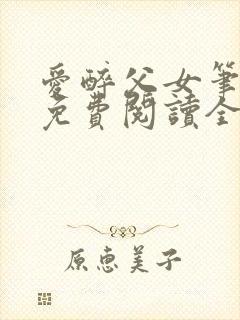 愛醉父女筆
免費閱讀全
原惠美子